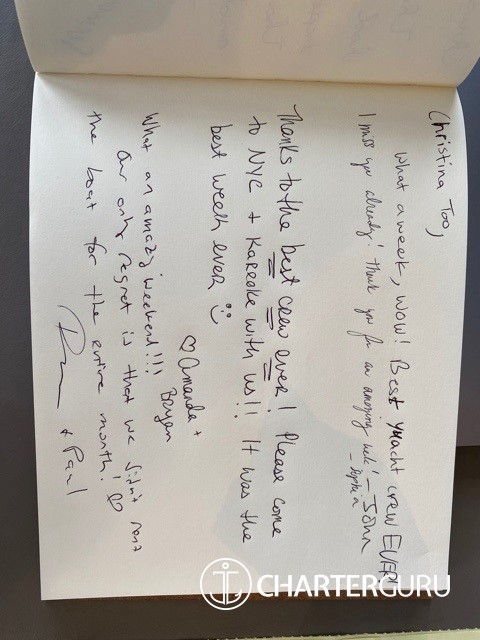 Christina Too,
What a week, wow! Best yacht crew EVER!
- John
I miss you already! Thank you for an amazing week!
- Sophia
Thanks to the best crew ever! Please come
to NYC + Kareoke with us!! It was the
best week ever
♡ Amanda +
Bryen
What an amazing weekend!!!
Our only regret is that we didn't rent
the boat for the entire month! ♡
+ Paul
CHARTERGURU